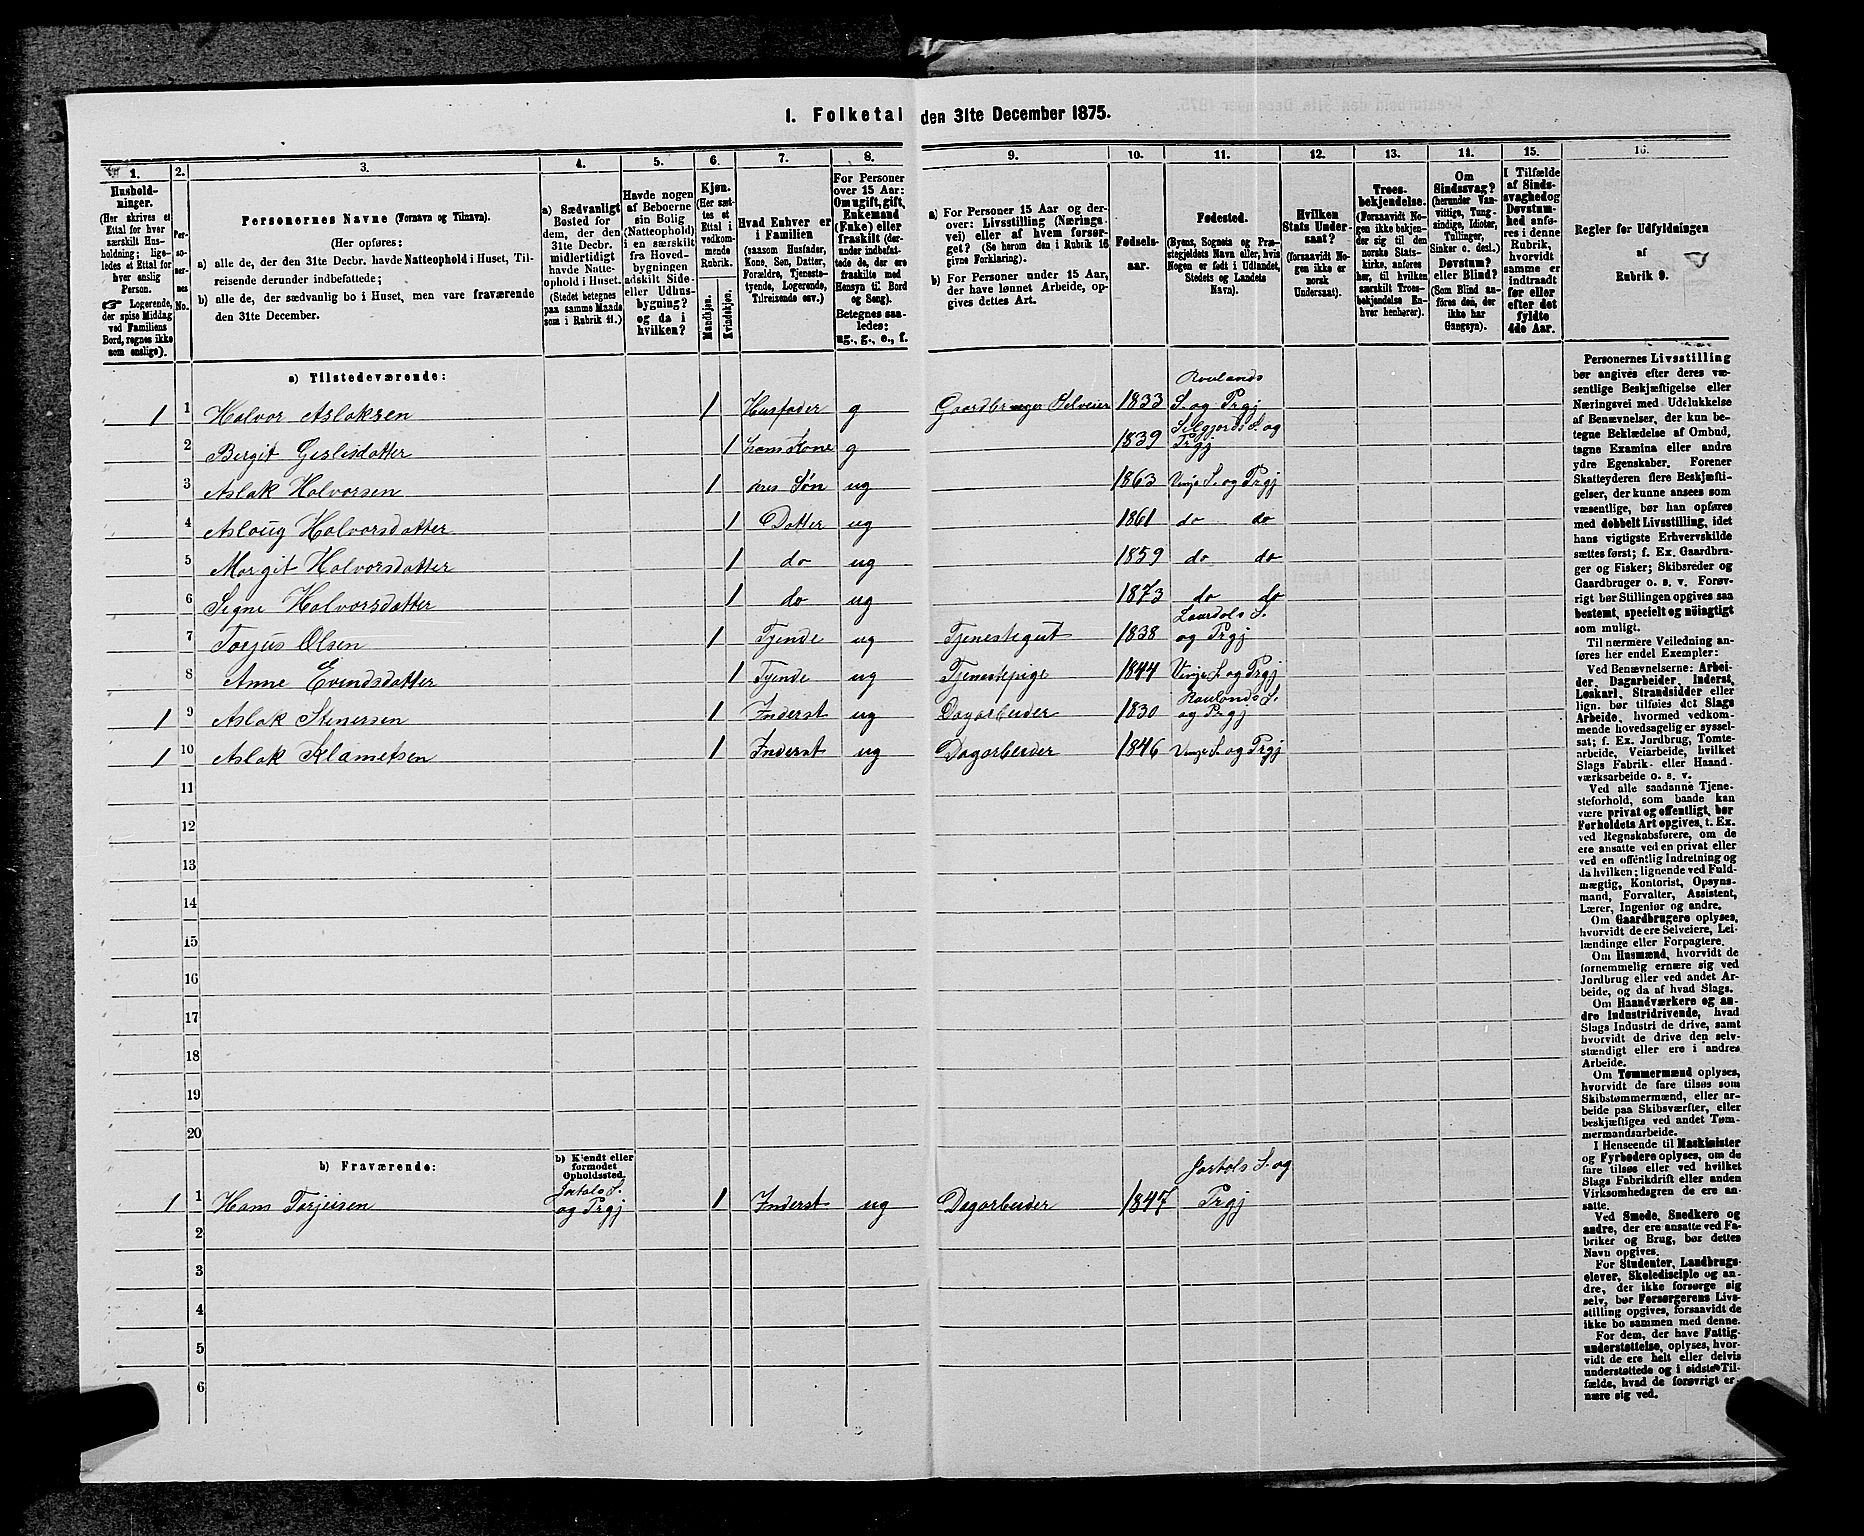 I. Folketal den 31te December 1875.
1.
Husholdninger.
(Her skrives et
Ettal for hver
særskilt Husholdning; ligeledes et Ettal for
hver enslig
Person.
☞ Logerende,
der spise Middag
ved Familiens
Bord, regnes ikke
som enslige).
2.
Personernes
No.
3.
Personernes Navne (Fornavn og Tilnavn).
(Her opføres:
a) alle de, der den 31te Decbr. havde Natteophold i Huset, Tilreisende derunder indbefattede;
b) alle de, der sædvanlig bo i Huset, men vare fraværende
den 31te December.
4.
a) Sædvanligt
Bosted for
dem, der den
31te Decbr.
midlertidigt
havde Natteophold i Huset.
(Stedet betegnes
paa samme Maade
som i Rubrik 11.)
5.
Havde nogen
af Beboerne
sin Bolig
(Natteophold)
i en særskilt
fra Hovedbygningen
adskilt Side-
eller Udhusbygning?
og da i
hvilken?
6.
Kjøn.
(Her sættes et
Ettal i
vedkommende
Rubrik.
Mandkjøn.
Kvindekjøn.
7.
Hvad Enhver er
i Familien
(saasom Husfader,
Kone, Søn, Datter,
Forældre, Tjenestetyende, Logerende,
Tilreisende osv.)
8.
For Personer
over 15 Aar:
Om ugift, gift,
Enkemand
(Enke) eller
fraskilt (derunder indbefattede de, der ere
fraskilte med
Hensyn til Bord
og Seng).
Betegnes saaledes:
ug., g., e., f.
9.
a) For Personer 15 Aar og derover: Livsstilling (Næringsvei) eller af hvem forsørget? (Se herom den i Rubrik 16
givne Forklaring).
b) For Personer under 15 Aar,
der have lønnet Arbeide, opgives dettes Art.
10.
Fødselsaar.
11.
Fødested.
(Byens, Sognets og Præstegjeldets Navn eller, hvis
Nogen er født i Udlandet,
Stedets og Landets
Navn).
12.
Hvilken
Stats Undersaat?
(forsaavidt Nogen ikke er
norsk
Undersaat).
13.
Troesbekjendelse.
(Forsaavidt Nogen ikke bekjender sig til den
norske Statskirke, anføres
her, til hvilken
særskilt Troesbekjendelse Enhver henhører).
14.
Om
Sindssvag?
(herunder Vanvittige, Tungsindige, Idioter,
Tullinger,
Sinker o. desl.)
Døvstum?
eller Blind?
(Som Blind anføres den, der
ikke har
Gangsyn).
15.
I Tilfælde
af Sindssvaghed og
Døvstumhed anføres i denne
Rubrik,
hvorvidt
samme er
indtraadt
før eller
efter det
fyldte
4de Aar.
16.
Regler for Udfyldningen
af
Rubrik 9.
a) Tilstedeværende:
1 1 Halvor Aslaksen 1 Husfader g Gaardbruger Selveier 1833 Raulands S. og Prgj
2 Bergit Gislisdatter 1 hans Kone g 1839 Selgjords S. og Prgj
3 Aslak Halvorsen 1 deres Søn ug 1863 Vinje S. og Prgj
4 Aslaug Halvorsdatter 1 Datter ug 1861 do do
5 Margit Halvorsdatter 1 do ug 1859 do do
6 Signe Halvorsdatter 1 do ug 1873 do do
7 Torjus Olsen 1 Tyende ug Tjenestegut 1838 Laurdals S. og Prgj
8 Anne Evindsdatter 1 Tyende ug Tjenestepige 1844 Vinje S. og Prgj
1 9 Aslak Stenersen 1 Inderst ug Dagarbeider 1830 Raulands S. og Prgj
1 10 Aslak Klametsen 1 Inderst ug Dagarbeider 1846 Vinje S. og Prgj
11
12
13
14
15
16
17
18
19
20
b) Fraværende:
b) Kjendt eller
formodet
Opholdssted.
1 1 Hans Torjeisen Jartals S. og Prgj 1 Inderst ug Dagarbeider 1847 Jartals S. og Prgj
2
3
4
5
6
Personernes Livsstilling
bør angives efter deres væsentlige Beskjæftigelse eller
Næringsvei med Udelukkelse
af Benævnelser, der kun betegne Beklædelse af Ombud,
tagne Examina eller andre
ydre Egenskaber. Forener
Skatteyderen flere Beskjæftigelser, der kunne ansees som
væsentlige, bør han opføres
med dobbelt Livsstilling, idet
hans vigtigste Erhvervskilde
sættes først; f. Ex. Gaardbruger og Fisker; Skibsreder og
Gaardbruger o. s. v. Forøvrigt bør Stillingen opgives saa
bestemt, specielt og nøiagtigt
som muligt.
Til nærmere Veiledning anføres her endel Exempler:
Ved Benævnelserne: Arbeider, Dagarbeider, Inderst,
Løskarl, Strandsidder eller
lign. bør tilføies det Slags
Arbeide, hvormed vedkommende hovedsagelig er sysselsat; f. Ex. Jordbrug, Tomtearbeide, Veiarbeide, hvilket
Slags Fabrik- eller Haandværksarbeide o. s. v.
Ved alle saadanne Tjenesteforhold, som baade kan
være privat og offentligt, bør
Forholdets Art opgives, t. Ex.
ved Regnskabsførere, om de
ere ansatte ved en privat eller
ved en offentlig Indretning og
da hvilken; lignende ved Fuldmægtig, Kontorist, Opsynsmand, Forvalter, Assistent,
Lærer, Ingeniør og andre.
Om Gaardbrugere oplyses,
hvorvidt de ere Selveiere, Leilændinge eller Forpagtere.
Om Husmænd, hvorvidt de
fornemmelig ernære sig ved
Jordbrug eller ved andet Arbeide, og da af hvad Slags.
Om Haandværkere og andre Industridrivende, hvad
Slags Industri de drive, samt
hvorvidt de drive den selvstændigt eller ere i andres
Arbeide.
Om Tømmermænd oplyses,
hvorvidt de fare tilsøs som
Skibstømmermænd, eller arbeide paa Skibsværfter, eller
beskjæftiges ved andet Tømmermandsarbeide.
I Henseende til Maskinister
og Fyrbødere oplyses, om de
fare tilsøs eller ved hvilket
Slags Fabrikdrift eller anden
Virksomhedsgren de ere ansatte.
Ved Smede, Snedkere og
andre, der ere ansatte ved Fabriker og Brug, bør dettes
Navn opgives.
For Studenter, Landbrugselever, Skoledisciple og andre, der ikke forsørge sig
selv, bør Forsørgerens Livsstilling opgives, forsaavidt de
ikke bo sammen med denne.
For dem, der have Fattigunderstøttelse, oplyses, hvorvidt de ere helt eller delvis
understøttede og i sidste Tilfælde, hvad de forøvrigt ernære sig ved.